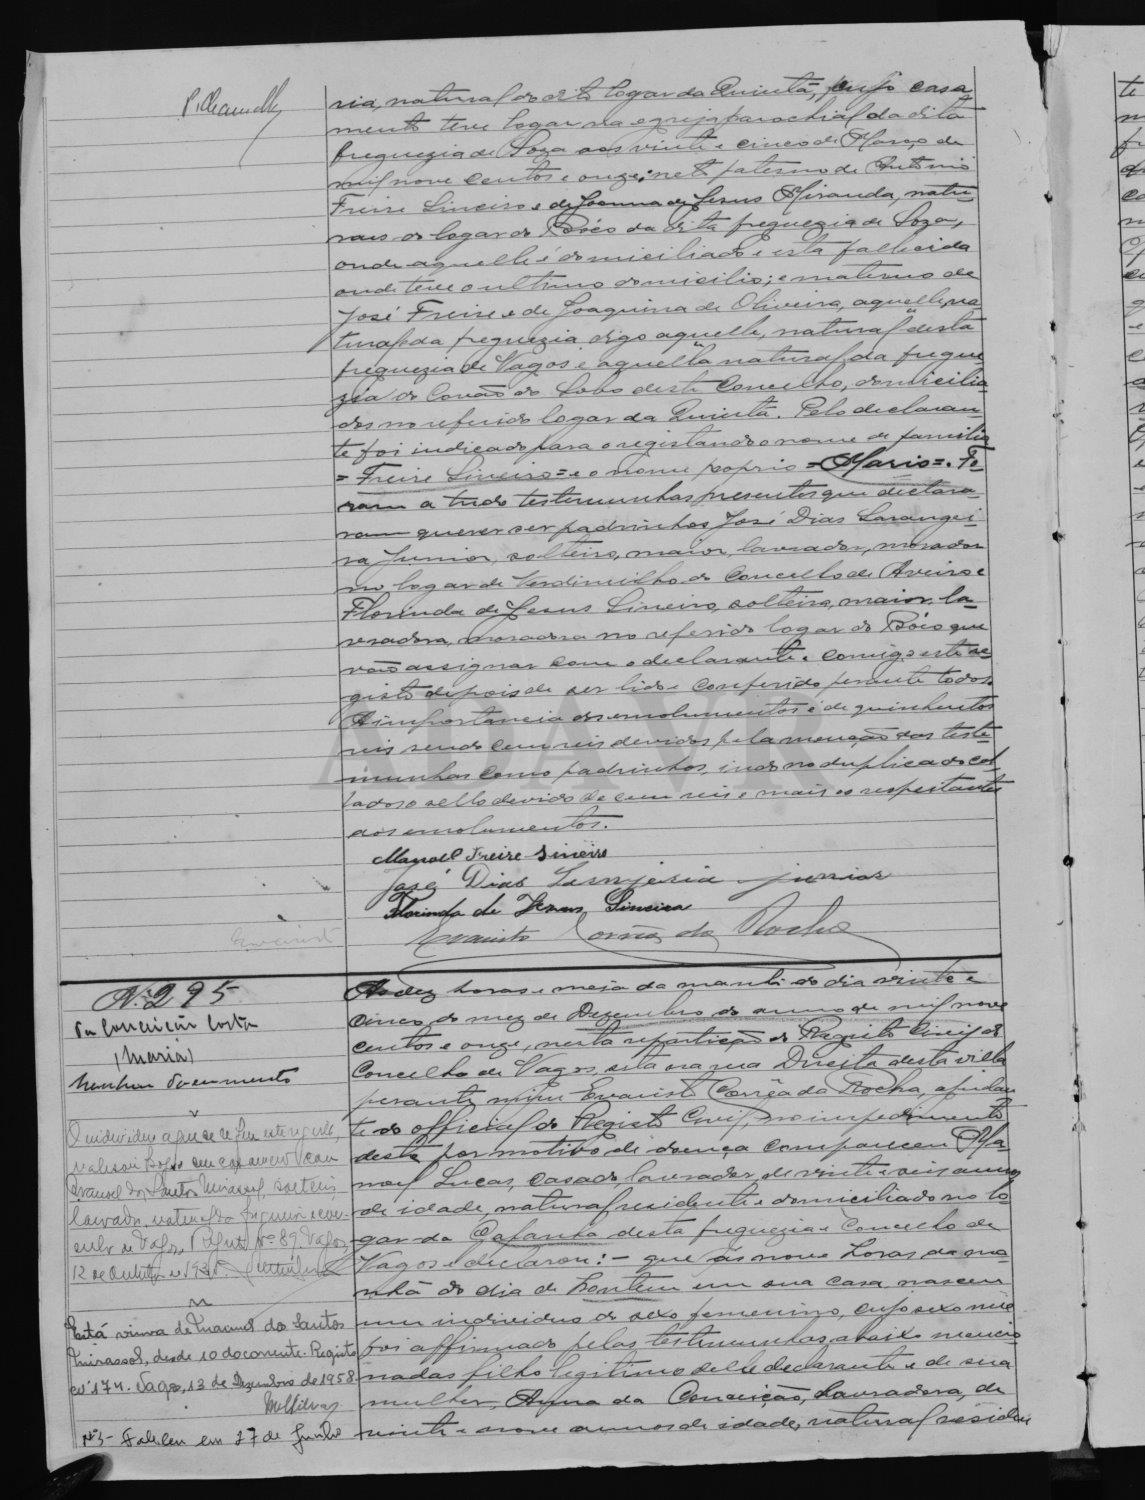 ria, natural do dito logar da Quintã, cujo casa
mento teve logar na egreja parochial da dita
freguezia de Soza aos vinte e cinco de Março de
mil nove centos e onze; neto paterno de Antonio
Freire Sineiro e de Joanna de Jesus Miranda, natu-
raes do logar do Boco da dita freguezia de Soza,
onde aquelle é domiciliado e esta fallecida
onde teve o ultimo domicilio; e materno de
José Freire e de Joaquina de Oliveira, aquelle, na
tural da freguezia digo aquelle, natural desta
freguezia de Vagos e aquella natural da fregue
zia do Covão do Lobo deste Concelho, domicilia
dos no referido logar da Quintã. Pelo declaran-
te foi indicado para o registando o nome de familia
= Freire Sineiro = e o nome proprio = Mario =. Fo-
ram a tudo testemunhas presentes que declara-
ram querer ser padrinhos, José Dias Larangei-
ra Junior, solteiro, maior, lavrador, morador
no logar de Verdimilho do Concelho de Aveiro e
Florinda de Jesus Sineiro, solteira, maior, la-
vradora, moradora no referido logar do Boco que
vão assignar com o declarante e comigo este re-
gisto depois de ser lido e conferido perante todos.
A importancia dos emolumentos é de quinhentos
reis sendo cem reis devidos pela menção das teste-
munhas como padrinhos, indo no duplicado col-
lados o sello devido de cem reis e mais os respeitantes
aos emolumentos.
Manoel Freire Sineiro
José Dias Laranjeira junior
Florinda de Jesus Sineira
Evaristo Corrêa da Rocha
ADAVR
N.º 295
da Conceição Costa
(Maria)
Nenhum documento
Ás dez horas e meia da manhã do dia vinte e
cinco do mez de Dezembro do anno de mil nove
centos e onze, nesta repartição do Registo Civil do
Concelho de Vagos, sita na rua Direita desta villa
perante mim Evaristo Corrêa da Rocha, ajudan
te do official do Registo Civil, no impedimento
deste por motivo de doença compareceu Ma-
noel Lucas, casado, lavrador, de vinte e seis annos
de idade, natural, residente e domiciliado no lo-
gar da Gafanha desta freguezia e Concelho de
Vagos e declarou: - que ás nove horas da ma-
nhã do dia de hontem em sua casa nasceu
um individuo do sexo femenino, cujo sexo me
foi affirmado pelas testemunhas abaixo mencio
nadas filho legitimo delle declarante e de sua
mulher, Anna da Conceição, lavradora, de
vinte e nove annos de idade, natural, residen
O individuo a que se refere este registo,
casamento com
Manoel dos Santos Mirassol, solteiro,
lavrador, natural da freguezia e con-
celho de Vagos. Registo nº 89. Vagos,
12 de Outubro de
Está viuva de Manuel dos Santos
Mirassol, desde 10 do corrente. Registo
nº 174. Vagos, 13 de Dezembro de 1958.
Nº 3 - Faleceu em 27 de Junho